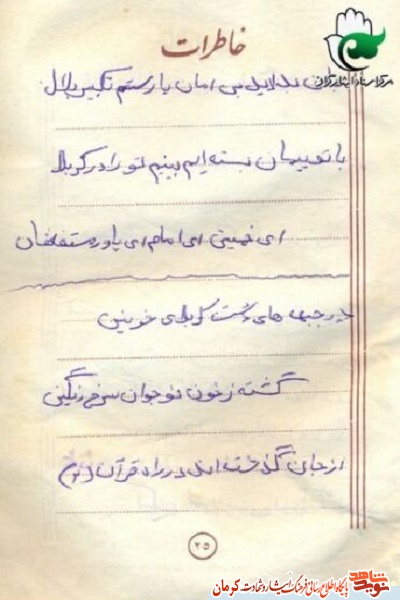 خاطرات
مرکز اسناد ایثارگران
امان با رستم تکبیر بلال
با تو پیمان بسته ایم بینیم تو را در کربلا
ای خمینی ای امام ای یاور مستضعفان
در جبهه های دشت کربلای خونین
گشته ز خون نوجوان سرخ رنگین
از جان گذشته اند در راه قرآن و
۲۵
نوید شاهد
پایگاه اطلاع رسانی فرهنگ ایثار و شهادت کرمان